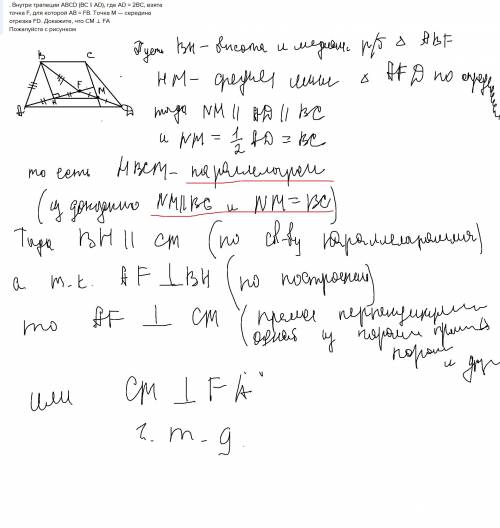 . Внутри трапеции ABCD (BC ∥ AD), где AD = 2BC, взята
точка F, для которой AB = FB. Точка M — середина
отрезка FD. Докажите, что CM ⊥ FA
Пожалуйсто с рисунком
B C
F
H M
A D
Пусть BH – высота и медиан. р/б Δ ABF
HM – средняя линия Δ AFD по
тогда NM ∥ AD ∥ BC
и NM = 1/2 AD = BC
то есть HBCM – параллелограм
(из доказанно NM∥BC и NM = BC)
Тогда BH ∥ CM (по св-ву параллелограмма)
а т.к. AF ⊥ BH (по построению)
то AF ⊥ CM (прямая перпендикулярн
одной из паралл прямых
и
или CM ⊥ FA
ч. т. д.